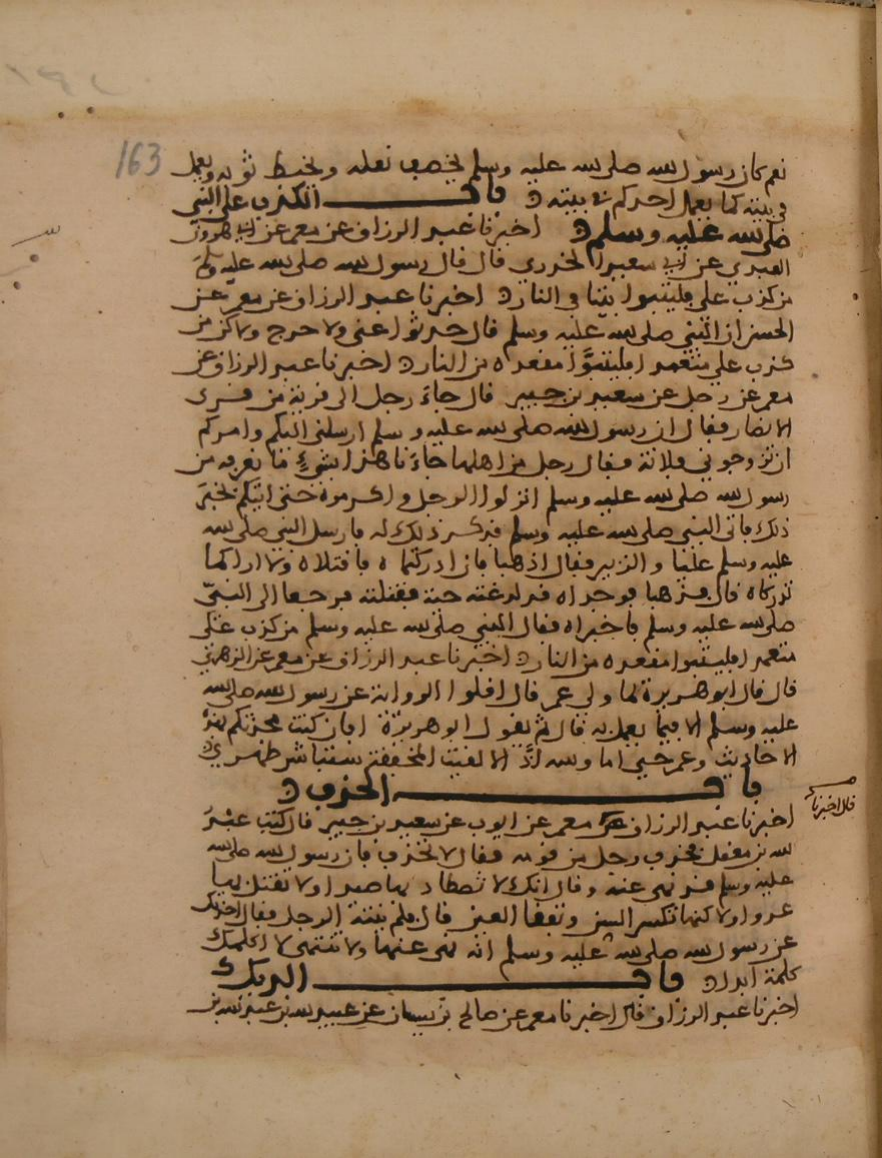 163
نعم كان رسول الله صلى الله عليه وسلم يخصف نعله ويخيط ثوبه ويعمل
في بيته كما يعمل احدكم في بيته باب الكذب على النبي
صلى الله عليه وسلم اخبرنا عبد الرزاق عن معمر عن ابي هرون
العبدي عن ابي سعيد الخدري قال قال رسول الله صلى الله عليه وسلم
من كذب علي فليتبوا بيتا في النار اخبرنا عبد الرزاق عن معمر عن
الحسن ان النبي صلى الله عليه وسلم قال حدثوا عني ولا حرج ولاكن من
كذب علي متعمدا فليتبوّا مقعده من النار اخبرنا عبد الرزاق عن
معمر عن رجل عن سعيد بن جبير قال جاء رجل الى قرية من قرى
الانصار فقال ان رسول الله صلى الله عليه وسلم ارسلني اليكم وامركم
ان تزوجوني فلانة فقال رجل من اهلها جاءنا هذا بشيء ما نعرفه من
رسول الله صلى الله عليه وسلم انزلوا الرجل واكرموه حتى اتيكم بخبر
ذلك فاتى النبي صلى الله عليه وسلم فذكر ذلك له فارسل النبي صلى الله
عليه وسلم عليا والزبير فقال اذهبا فان ادركتماه فاقتلاه ولا اراكما
تدركاه قال فذهبا فوجداه قد لدغته حية فقتلته فرجعا الى النبيّ
صلى الله عليه وسلم فاخبراه فقال النبي صلى الله عليه وسلم من كذب علي
متعمدا فليتبوا مقعده من النار اخبرنا عبد الرزاق عن معمر عن الزهري
قال قال ابو هريرة لما ولي عمر قال اقلوا الرواية عن رسول الله صلى الله
عليه وسلم الا فيما يعمل به قال ثم يقول ابو هريرة افان كنت محدثكم بهذه
الاحاديث وعمر حي اما والله اذًا الا لفيت المخفقة ستباشر ظهري
باب الخذف
اخبرنا عبد الرزاق عن معمر عن ايوب عن سعيد بن جبير قال كنت عند
قال اخبرنا
الله بن مغفل فخذف رجل من قومه فقال لا تخذف فان رسول الله صلى الله
عليه وسلم قد نهى عنه وقال انك لا تصطاد بها صيدا ولا تقتل بها
عدوا ولاكنها تكسر السن وتفقا العين قال فلم ينته الرجل فقال احدثك
عن رسول الله صلى الله عليه وسلم انه نهى عنها ولا تنتهي لا اكلمك
كلمة ابدا باب الديك
اخبرنا عبد الرزاق قال اخبرنا معمر عن صالح بن كيسان عن عبيد الله بن عبد الله بن